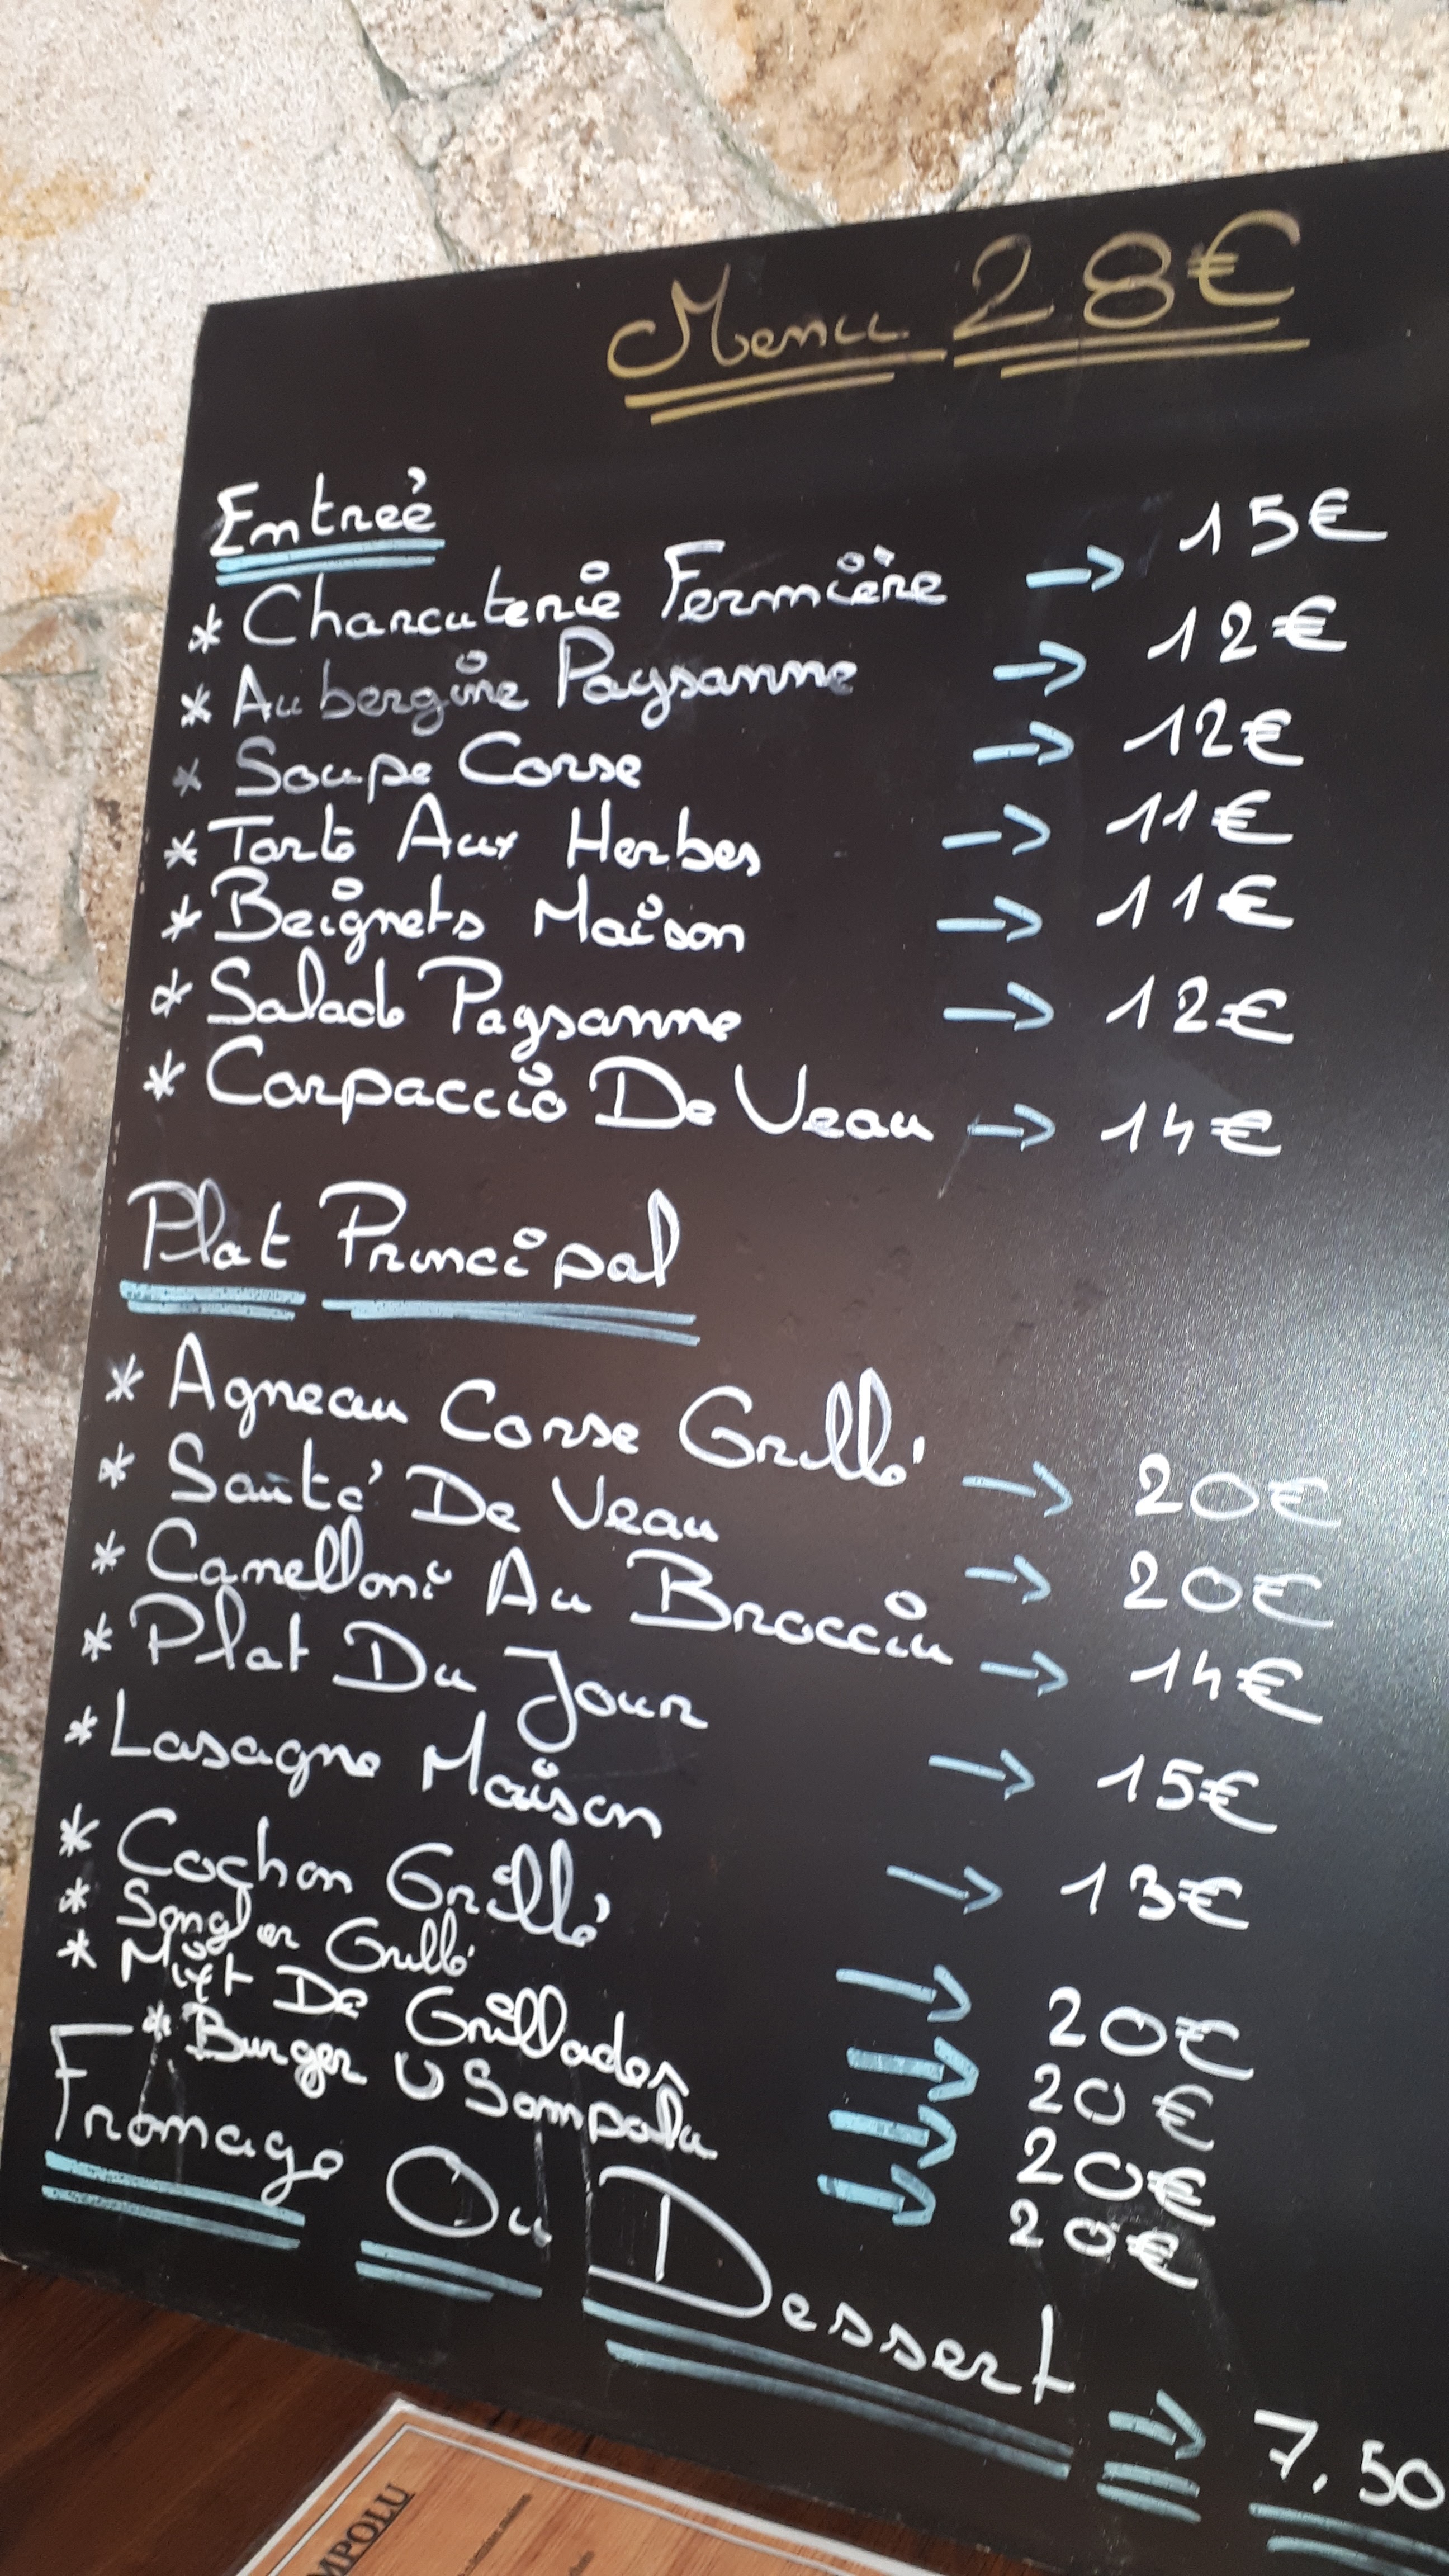 Menu 28€
Entreé
* Charcuterie Fermière → 15€
* Aubergine Paysanne → 12€
* Soupe Corse → 12€
* Tarte Aux Herbes → 11€
* Beignets Maison → 11€
* Salade Paysanne → 12€
* Carpaccio De Veau → 14€
Plat Principal
* Agneau Corse Grillé → 20€
* Sauté De Veau → 20€
* Canelloni Au Brocciu → 14€
* Plat Du Jour → 15€
* Lasagne Maison → 13€
* Cochon Grillé → 20€
* Sanglier Grillé → 20€
* Mixt De Grillades → 20€
* Burger U Sampolu → 20€
Fromage Ou Dessert → 7.50
MPOLU